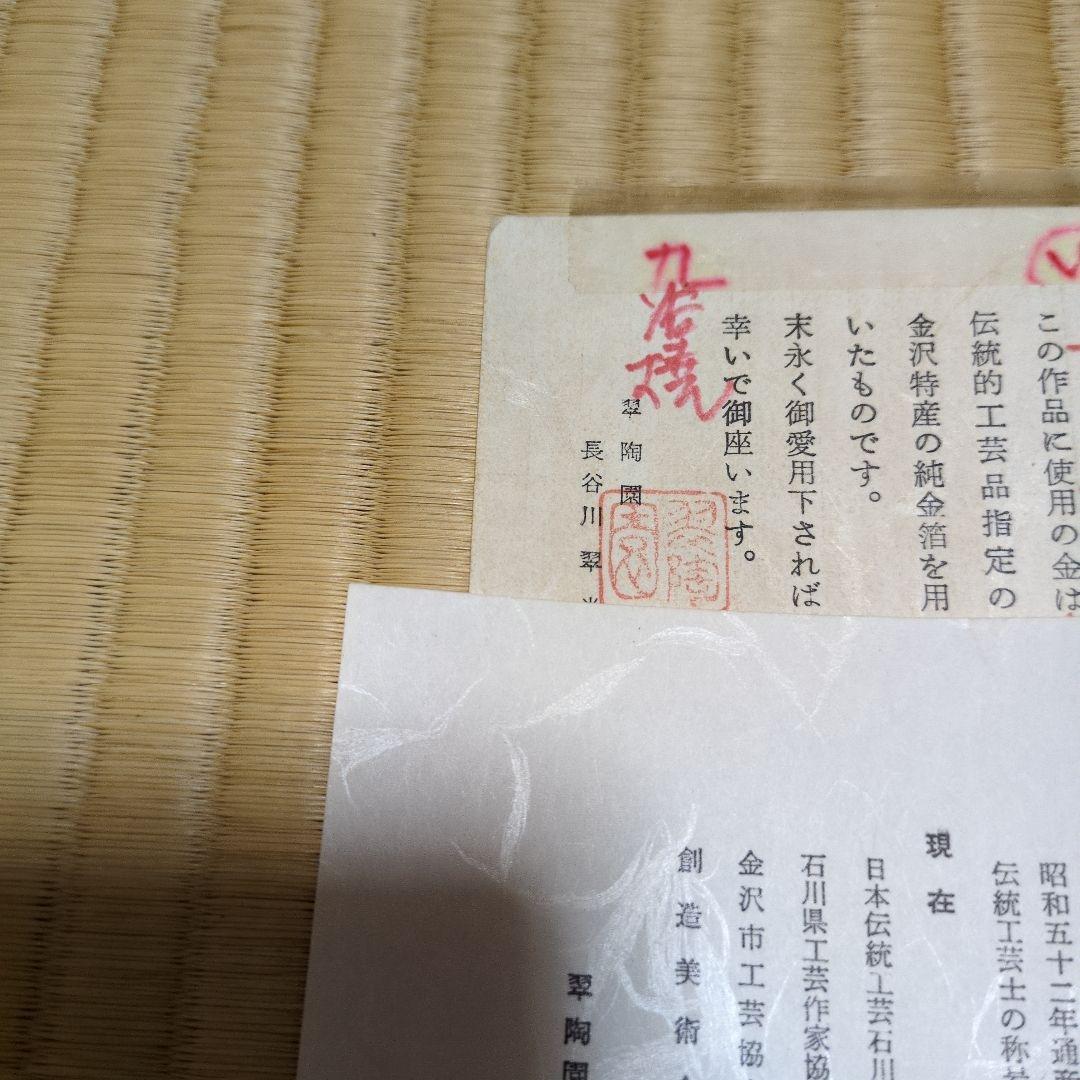 この作品に使用の金は
伝統的工芸品指定の
金沢特産の純金箔を用
いたものです。
末永く御愛用下されば
幸いで御座います。
九谷焼
翠陶園
長谷川翠
翠陶園
昭和五十二年通産
伝統工芸士の称
現在
日本伝統工芸石川
石川県工芸作家協
金沢市工芸協
創造美術
翠陶園